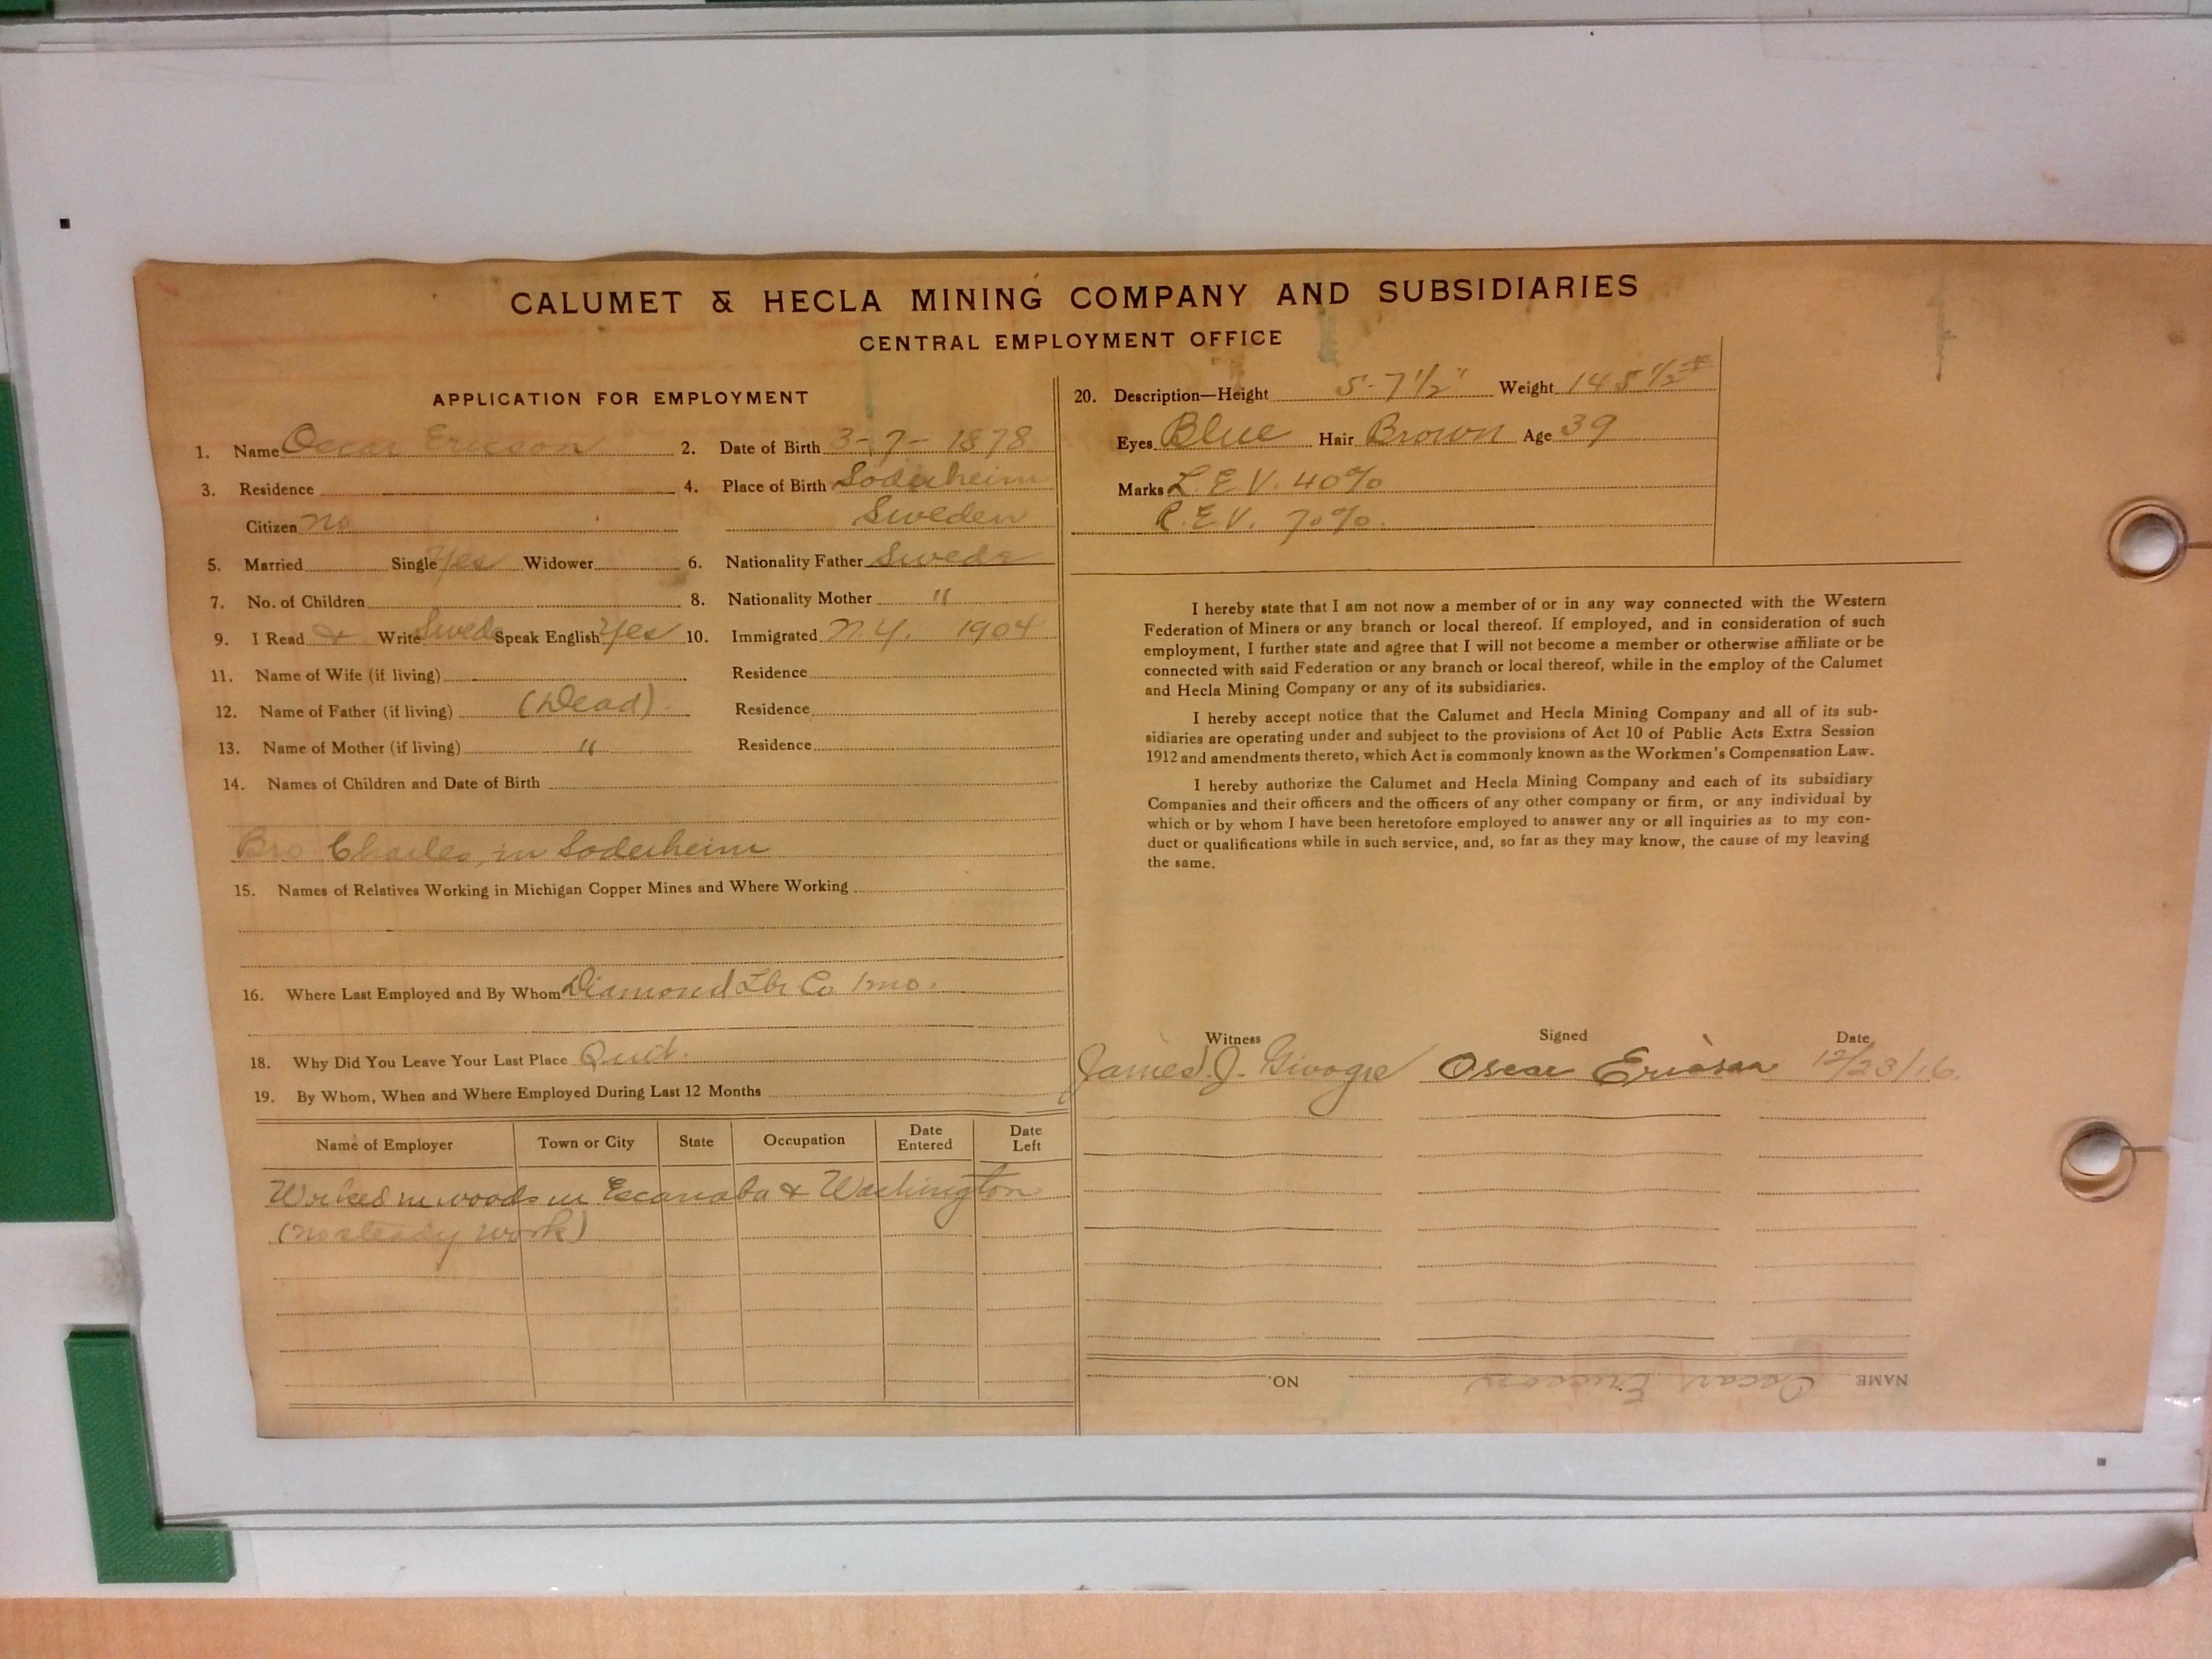 CALUMET & HECLA MINING COMPANY AND SUBSIDIARIES
CENTRAL EMPLOYMENT OFFICE
APPLICATION FOR EMPLOYMENT
1. Name Oscar Ericson 2. Date of Birth 3-7-1878
3. Residence 4. Place of Birth Soderheim
Citizen no Sweden
5. Married Single Yes Widower 6. Nationality Father Swede
7. No. of Children 8. Nationality Mother "
9. I Read & Write Swede Speak English Yes 10. Immigrated N.Y. 1904
11. Name of Wife (if living) Residence
12. Name of Father (if living) (Dead) Residence
13. Name of Mother (if living) " Residence
14. Names of Children and Date of Birth
Bro Charles, in Soderheim
15. Names of Relatives Working in Michigan Copper Mines and Where Working
16. Where Last Employed and By Whom Diamond Lbr Co 1 mo.
18. Why Did You Leave Your Last Place Quit.
19. By Whom, When and Where Employed During Last 12 Months
Name of Employer Town or City State Occupation Date Entered Date Left
Worked in woods in Escanaba & Washington
(no steady work)
20. Description—Height 5-7 1/2" Weight 145 1/2 #
Eyes Blue Hair Brown Age 39
Marks L.E.V. 40%
R.E.V. 70%.
I hereby state that I am not now a member of or in any way connected with the Western
Federation of Miners or any branch or local thereof. If employed, and in consideration of such
employment, I further state and agree that I will not become a member or otherwise affiliate or be
connected with said Federation or any branch or local thereof, while in the employ of the Calumet
and Hecla Mining Company or any of its subsidiaries.
I hereby accept notice that the Calumet and Hecla Mining Company and all of its sub-
sidiaries are operating under and subject to the provisions of Act 10 of Public Acts Extra Session
1912 and amendments thereto, which Act is commonly known as the Workmen's Compensation Law.
I hereby authorize the Calumet and Hecla Mining Company and each of its subsidiary
Companies and their officers and the officers of any other company or firm, or any individual by
which or by whom I have been heretofore employed to answer any or all inquiries as to my con-
duct or qualifications while in such service, and, so far as they may know, the cause of my leaving
the same.
Witness Signed Date
James J. Oscar Ericson 12/23/16.
NAME Oscar Ericson NO.